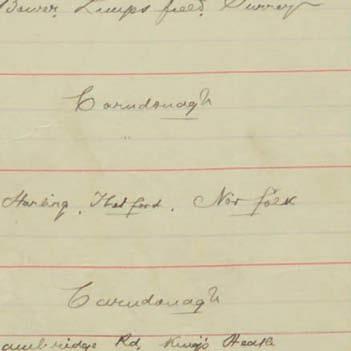 Bower, Limpsfield, Surrey
Carndonagh
Harling, Thetford, Norfolk
Carndonagh
ambridge Rd, King's Heath